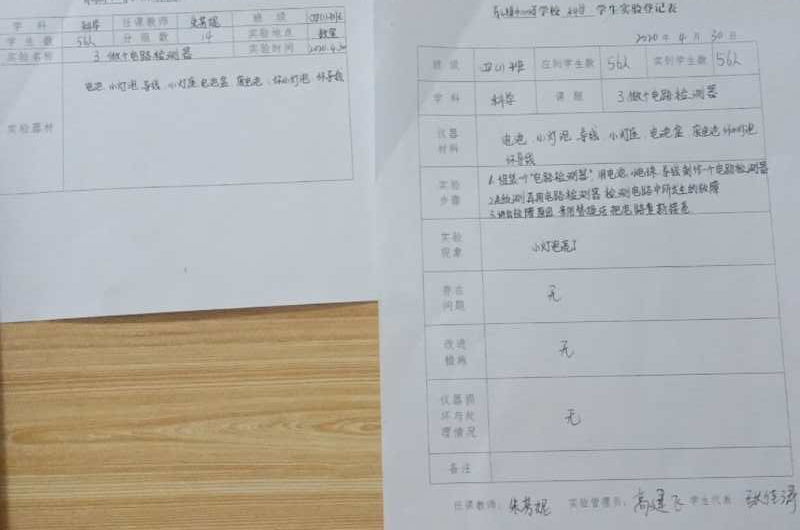 学科 科学 任课教师 朱芳妮 班级 四(1)班
学生数 56人 分组数 14 实验地点 教室
实验名称 3做个电路检测器 实验时间 2020.4.30
电池 小灯泡 导线 小灯座 电池盒 废电池 坏小灯泡 坏导线
实验器材
学校 科学 学生实验登记表
2020年4月30日
班级 四(1)班 应到学生数 56人 实到学生数 56人
学科 科学 课题 3做个电路检测器
仪器材料 电池 小灯泡 导线 小灯座 电池盒 废电池 坏小灯泡
坏导线
实验步骤 1.组装一个"电路检测器" 用电池 小电珠 导线制作一个电路检测器
2.检测 再用电路检测器 检测电路中所发生的故障
3.
实验现象 小灯泡亮了
存在问题 无
改进措施 无
仪器损坏与处理情况 无
备注
任课教师：朱芳妮 实验管理员：高建飞 学生代表